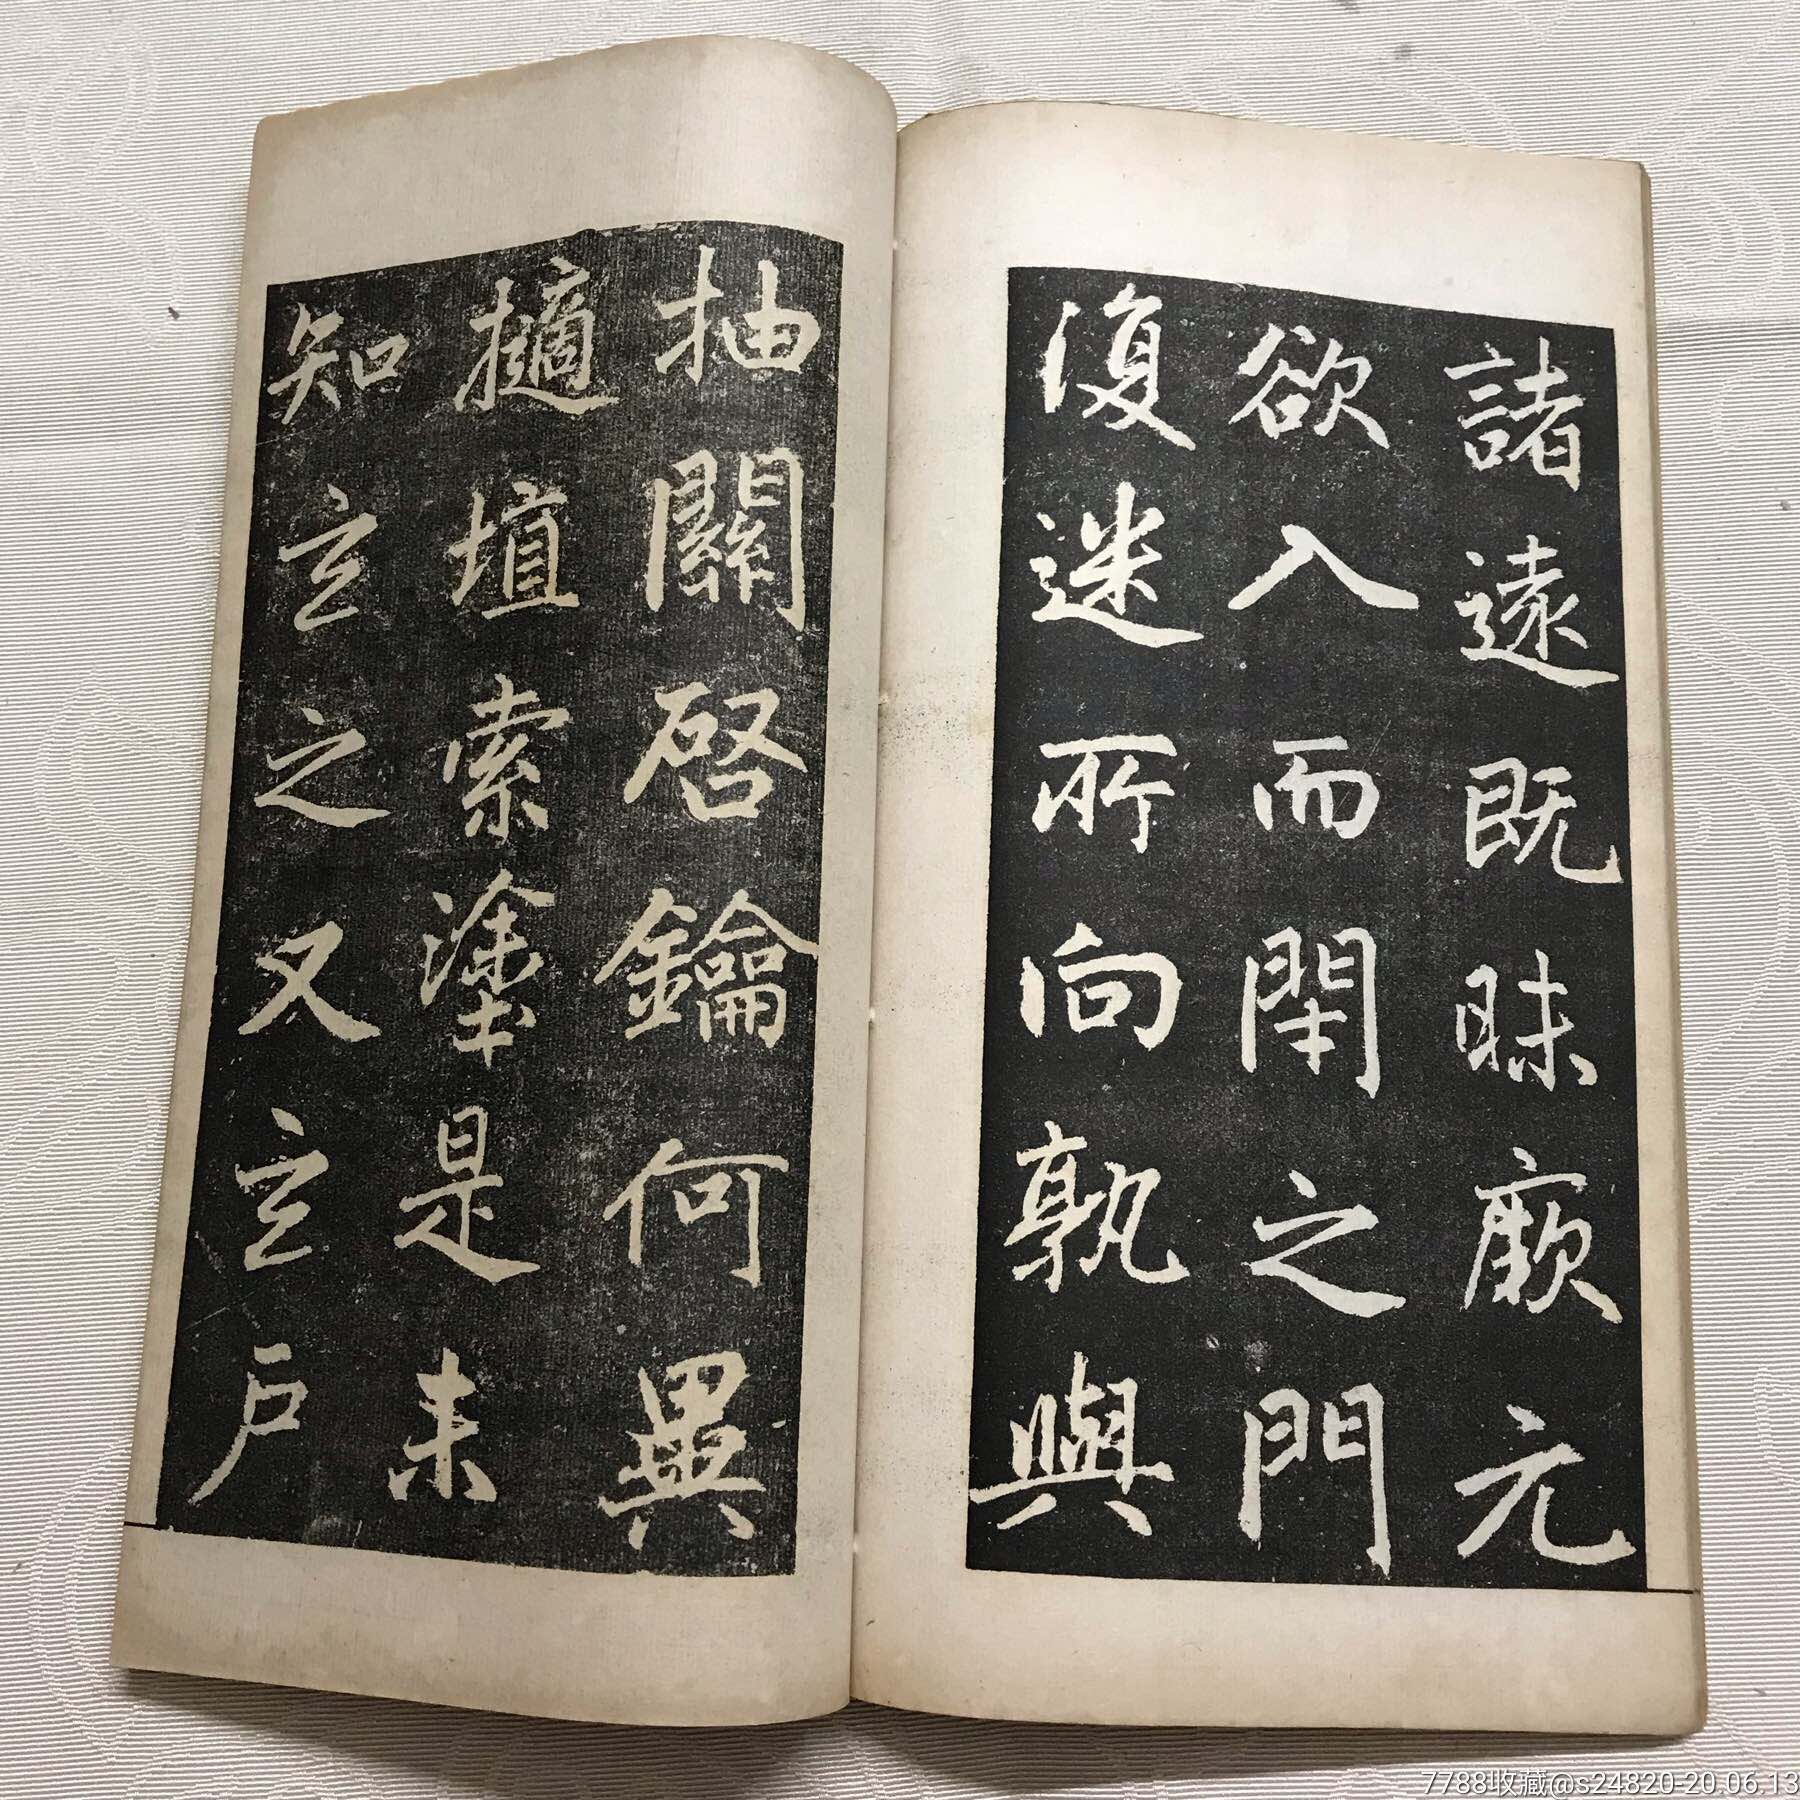 諸遠既昧厥元
欲入而閇之門
復迷所向孰與
抽關啓鑰何異
擿埴索塗是未
知玄之又玄戶
7788收藏@s24820-20.06.13